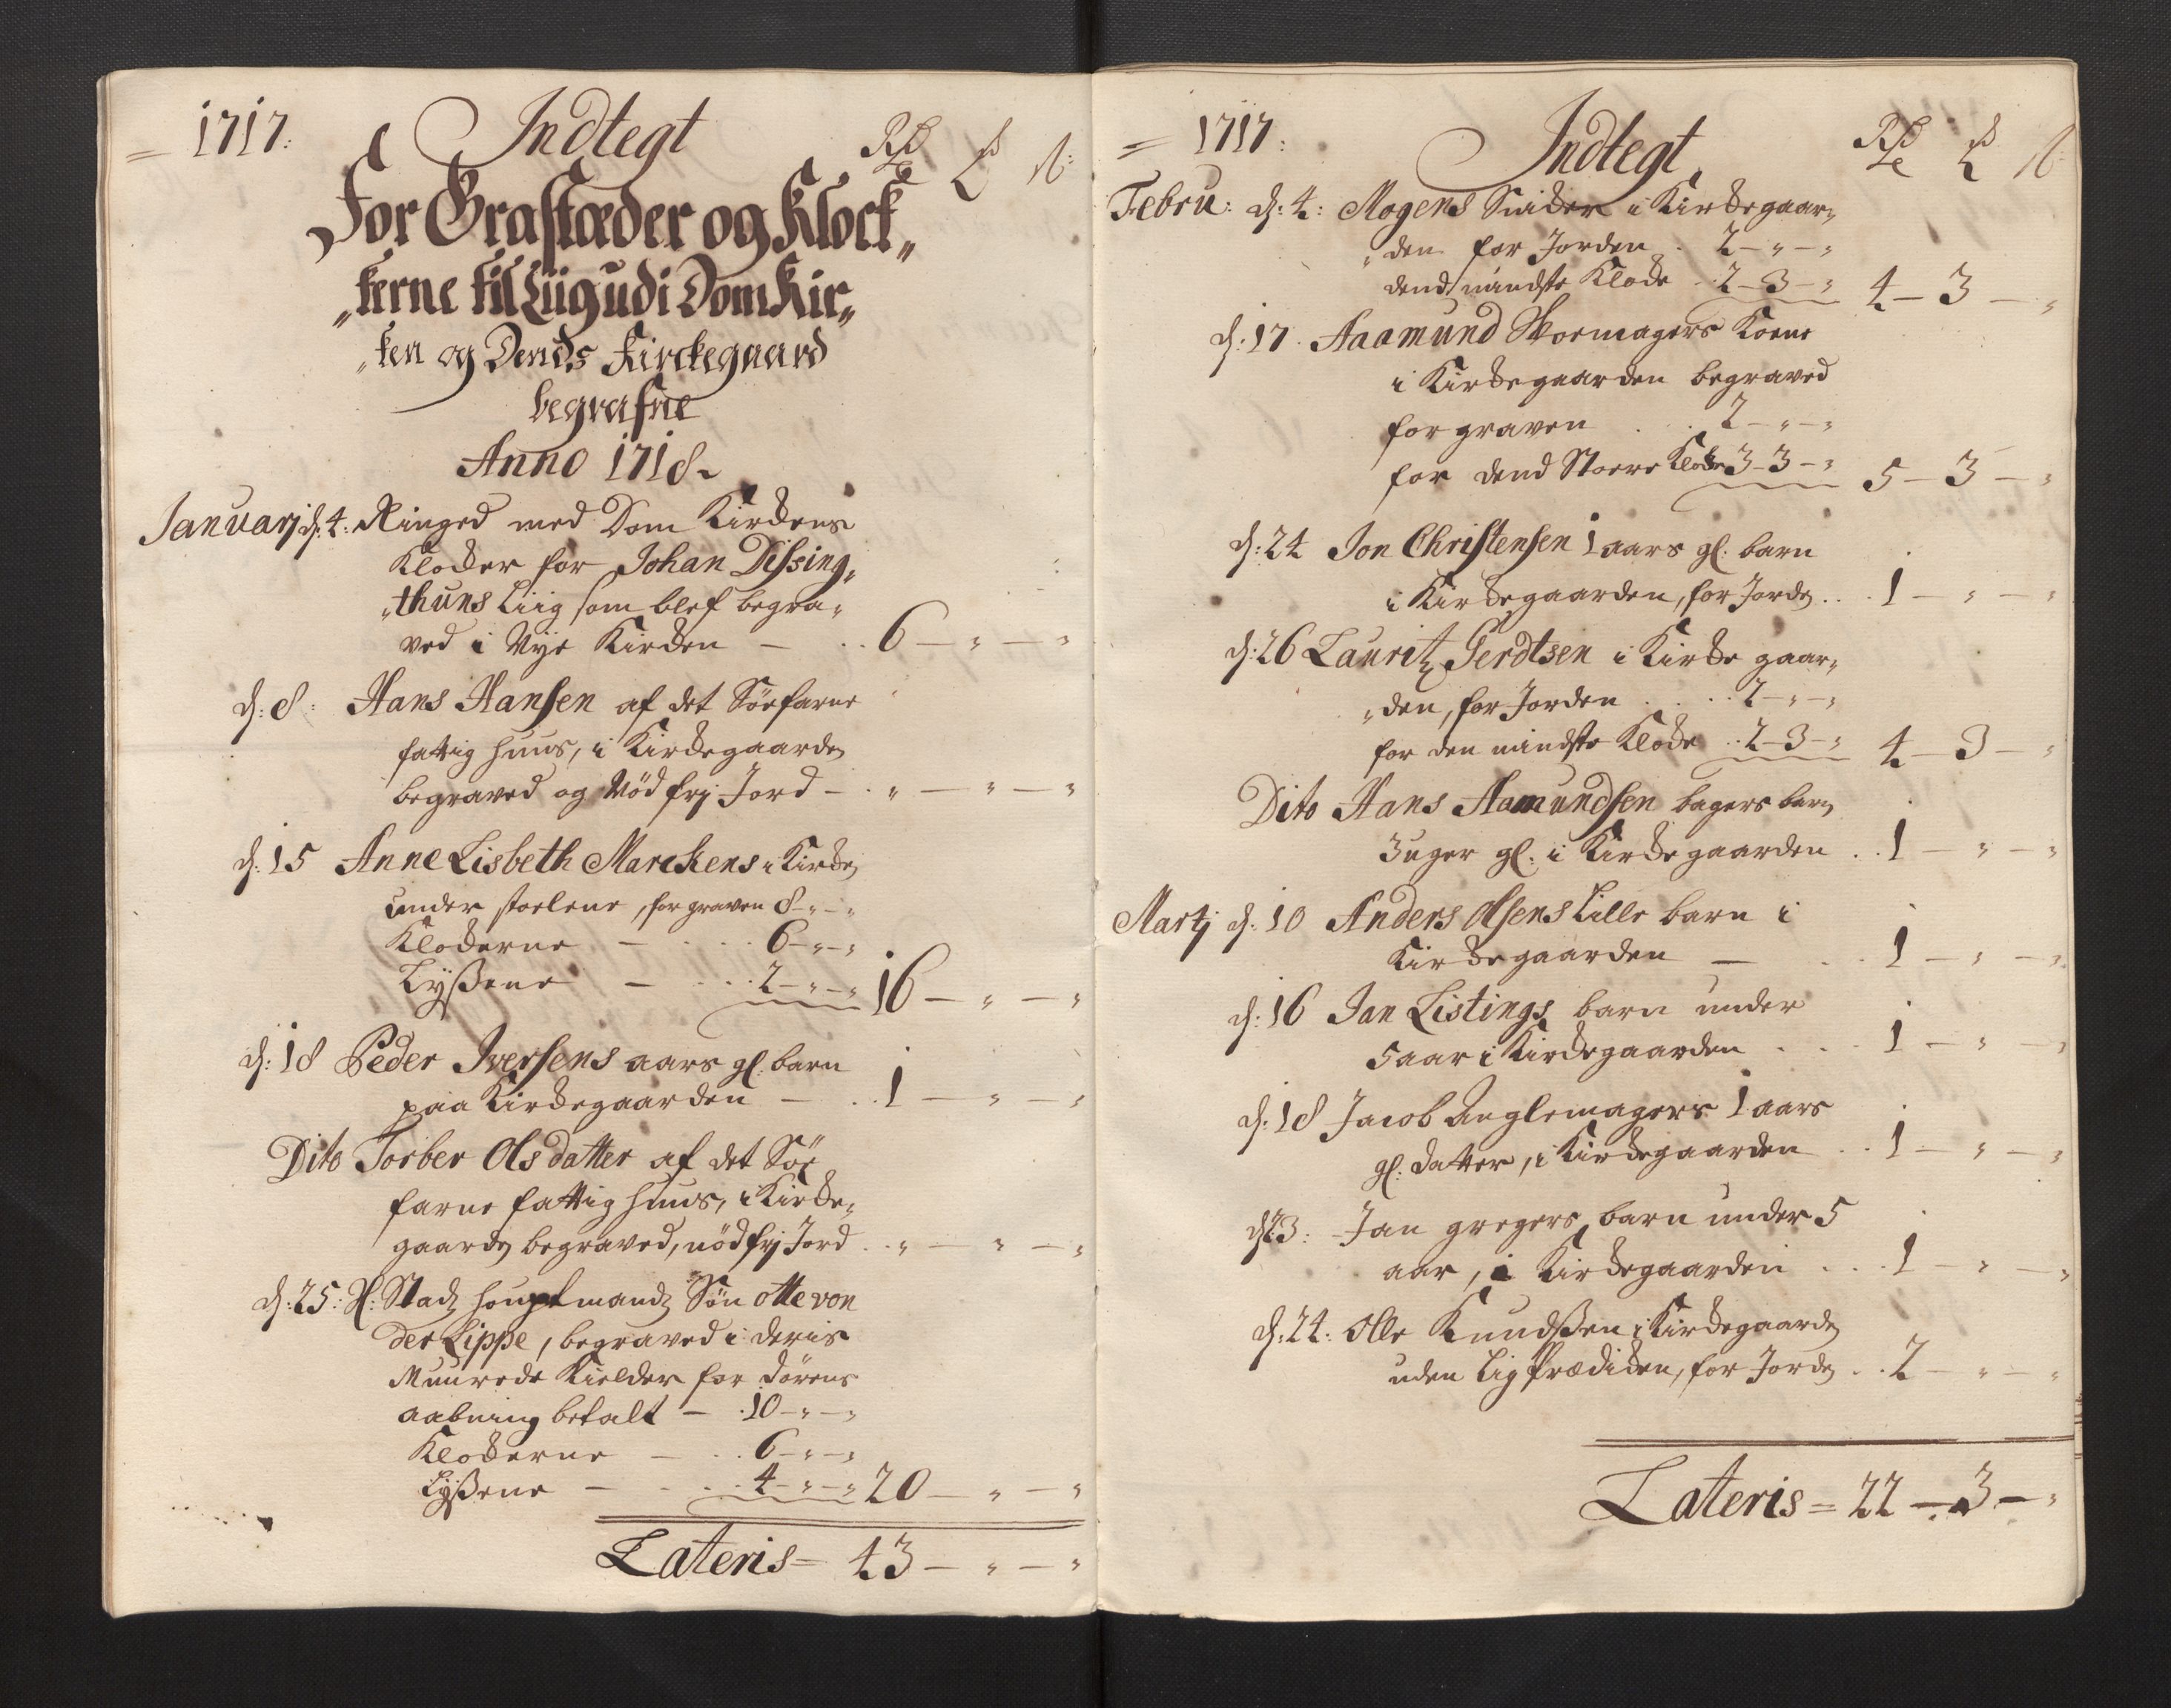 1717:
Indtegt
Rd ß
For Grafstæder og Klock„
„kerne til Liig udi DomKir„
„ken og Dends Kirckegaard
begrafne
Anno 1718
Januarj d: 4: Ringed med Dom Kirckens
Klocker for Johan Dissing„
„thuns Liig som blef begra„
ved i Nye Kircken — .. 6 — „ — „
d: 8: Hans Hansen af det Söefarne
fattig huus, i Kirckegaarden
begraved og Nöd frj Jord — . „ — „ — „
d: 15 Anne Lisbeth Marckens i Kircken
under stoelene, for graven 8 - „ - „
Klockerne — . . . 6 - „ - „
Lyßene — . . . 2 - „ - „ 16 — „ — „
d: 18 Peder Iversens aars gl: barn
paa Kirckegaarden — . . 1 — „ — „
Dito Torber Olsdatter af det Söe
farne fattig huus, i Kircke„
gaarden begraved, nöd frj Jord . . „ — „ — „
d: 25: H: Stadz houptmandz Sön otte von
der Lippe, begraved i deris
Muurede Kielder for dörens
aabning betalt — . 10 - „ - „
Klockerne — . . 6 - „ - „
Lyßene — . . 4 - „ - „ 20 — „ — „
Lateris = 43 — „ — „
1717:
Indtegt
Rd ß
Febru: d: 4: Mogens Snider i Kirckegaar„
„den for Jorden . 2 - „ - „
dend mindste Klocke . 2 - 3 - „ 4 — 3 — „
d: 17. Aamund Skoemagers Kone
i Kirckegaarden begraved
for graven . . 2 - „ - „
for dend Stoere Klocke 3 - 3 - „ 5 — 3 — „
d: 24 Jon Christensen 1 aars gl: barn
i Kirckegaarden, for Jorden . . . 1 — „ — „
d: 26 Lauritz Gerdtsen i Kircke gaar„
„den, for Jorden . . . 2 - „ - „
for den mindste Klocke . . 2 - 3 - „ 4 — 3 — „
Dito Hans Aamundsen bagers barn
3 uger gl: i Kirckegaarden . . 1 — „ — „
Martj d: 10 Anders Olsens Lille barn i
Kirckegaarden — . . 1 — „ — „
d: 16 Jan Listings barn under
5 aar i Kirckegaarden . . . 1 — „ — „
d: 18 Jacob Nuglemagers 1 aars
gl: datter, i Kirckegaarden . . 1 — „ — „
d: 23: Jan gregers barn under 5
aar, i Kirckegaarden . . . 1 — „ — „
d: 24: Olle Knudßen i Kirckegaarden
uden Lig Prædicken, for Jorden . . 2 — „ — „
Lateris = 22 — 3 — „